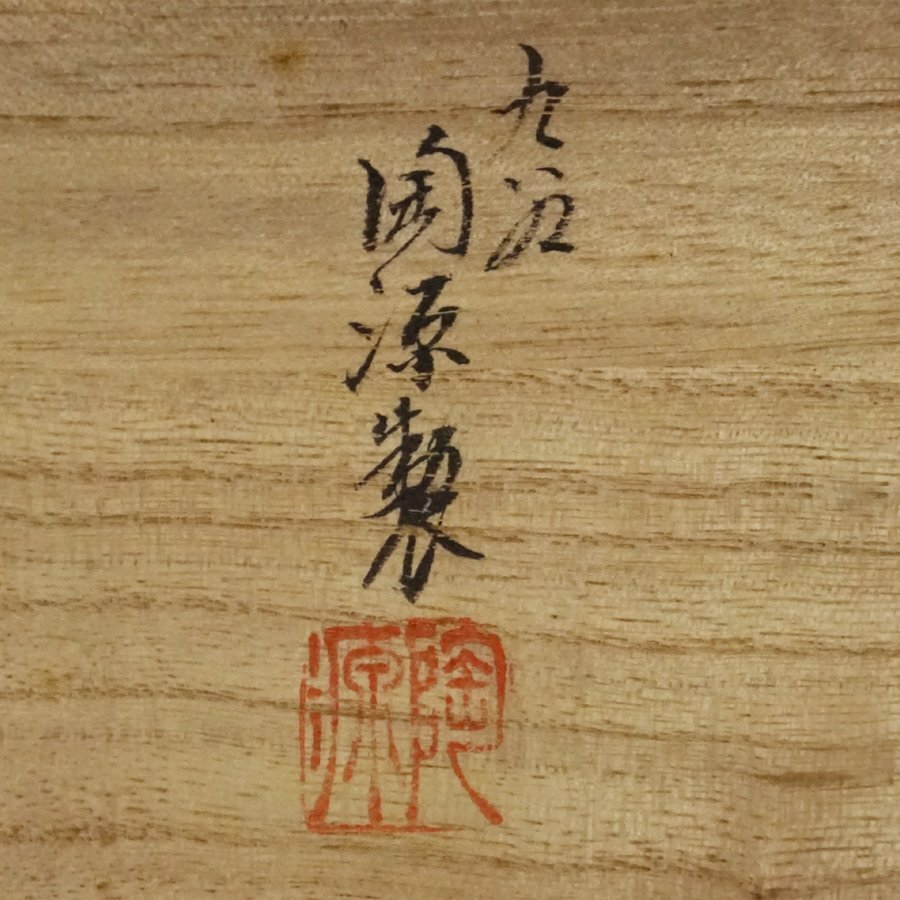 九谷
陶源製
陶源